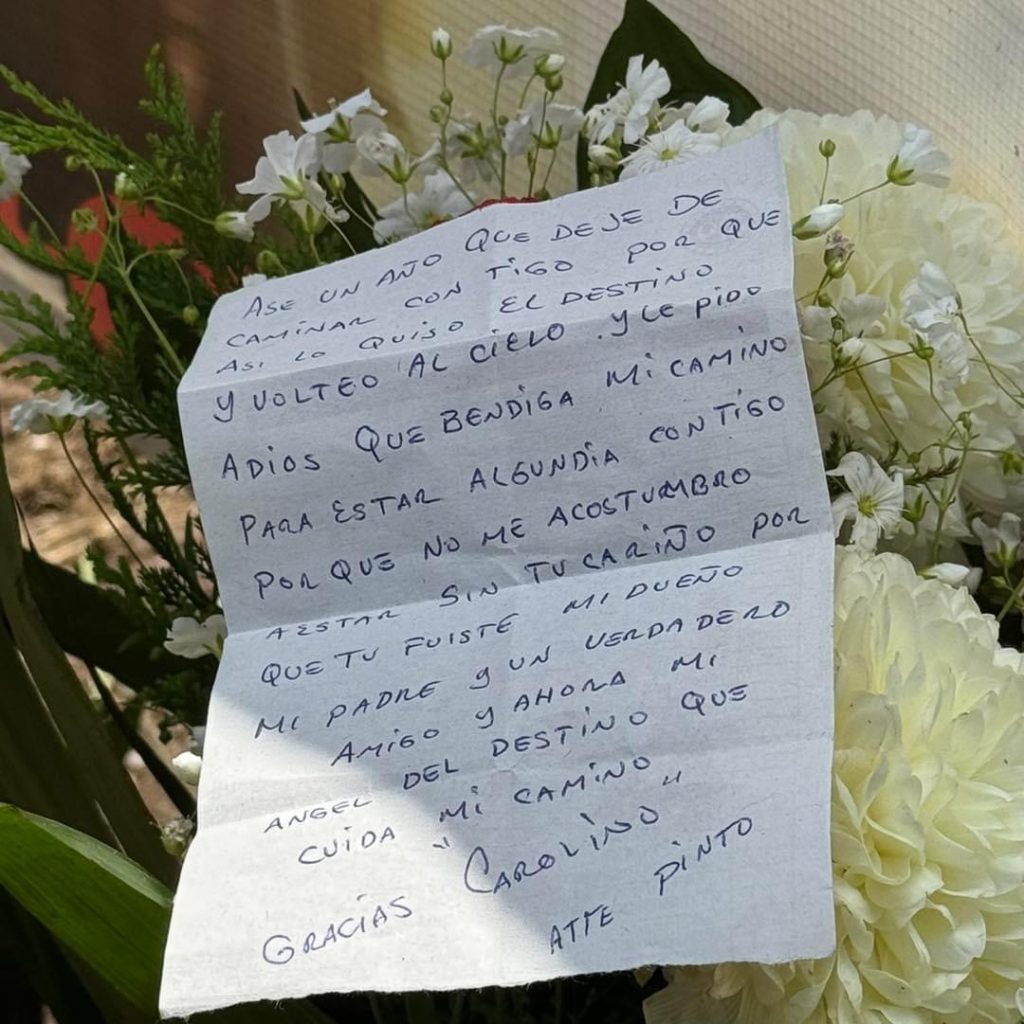 ASE UN AÑO QUE DEJE DE
CAMINAR CON TIGO POR QUE
ASI LO QUISO EL DESTINO
Y VOLTEO AL CIELO . Y LE PIDO
ADIOS QUE BENDIGA MI CAMINO
PARA ESTAR ALGUNDIA CONTIGO
POR QUE NO ME ACOSTUMBRO
AESTAR SIN TU CARIÑO POR
QUE TU FUISTE MI DUEÑO
MI PADRE Y UN VERDADERO
AMIGO Y AHORA MI
ANGEL DEL DESTINO QUE
CUIDA MI CAMINO
GRACIAS "CAROLINO"
ATTE PINTO